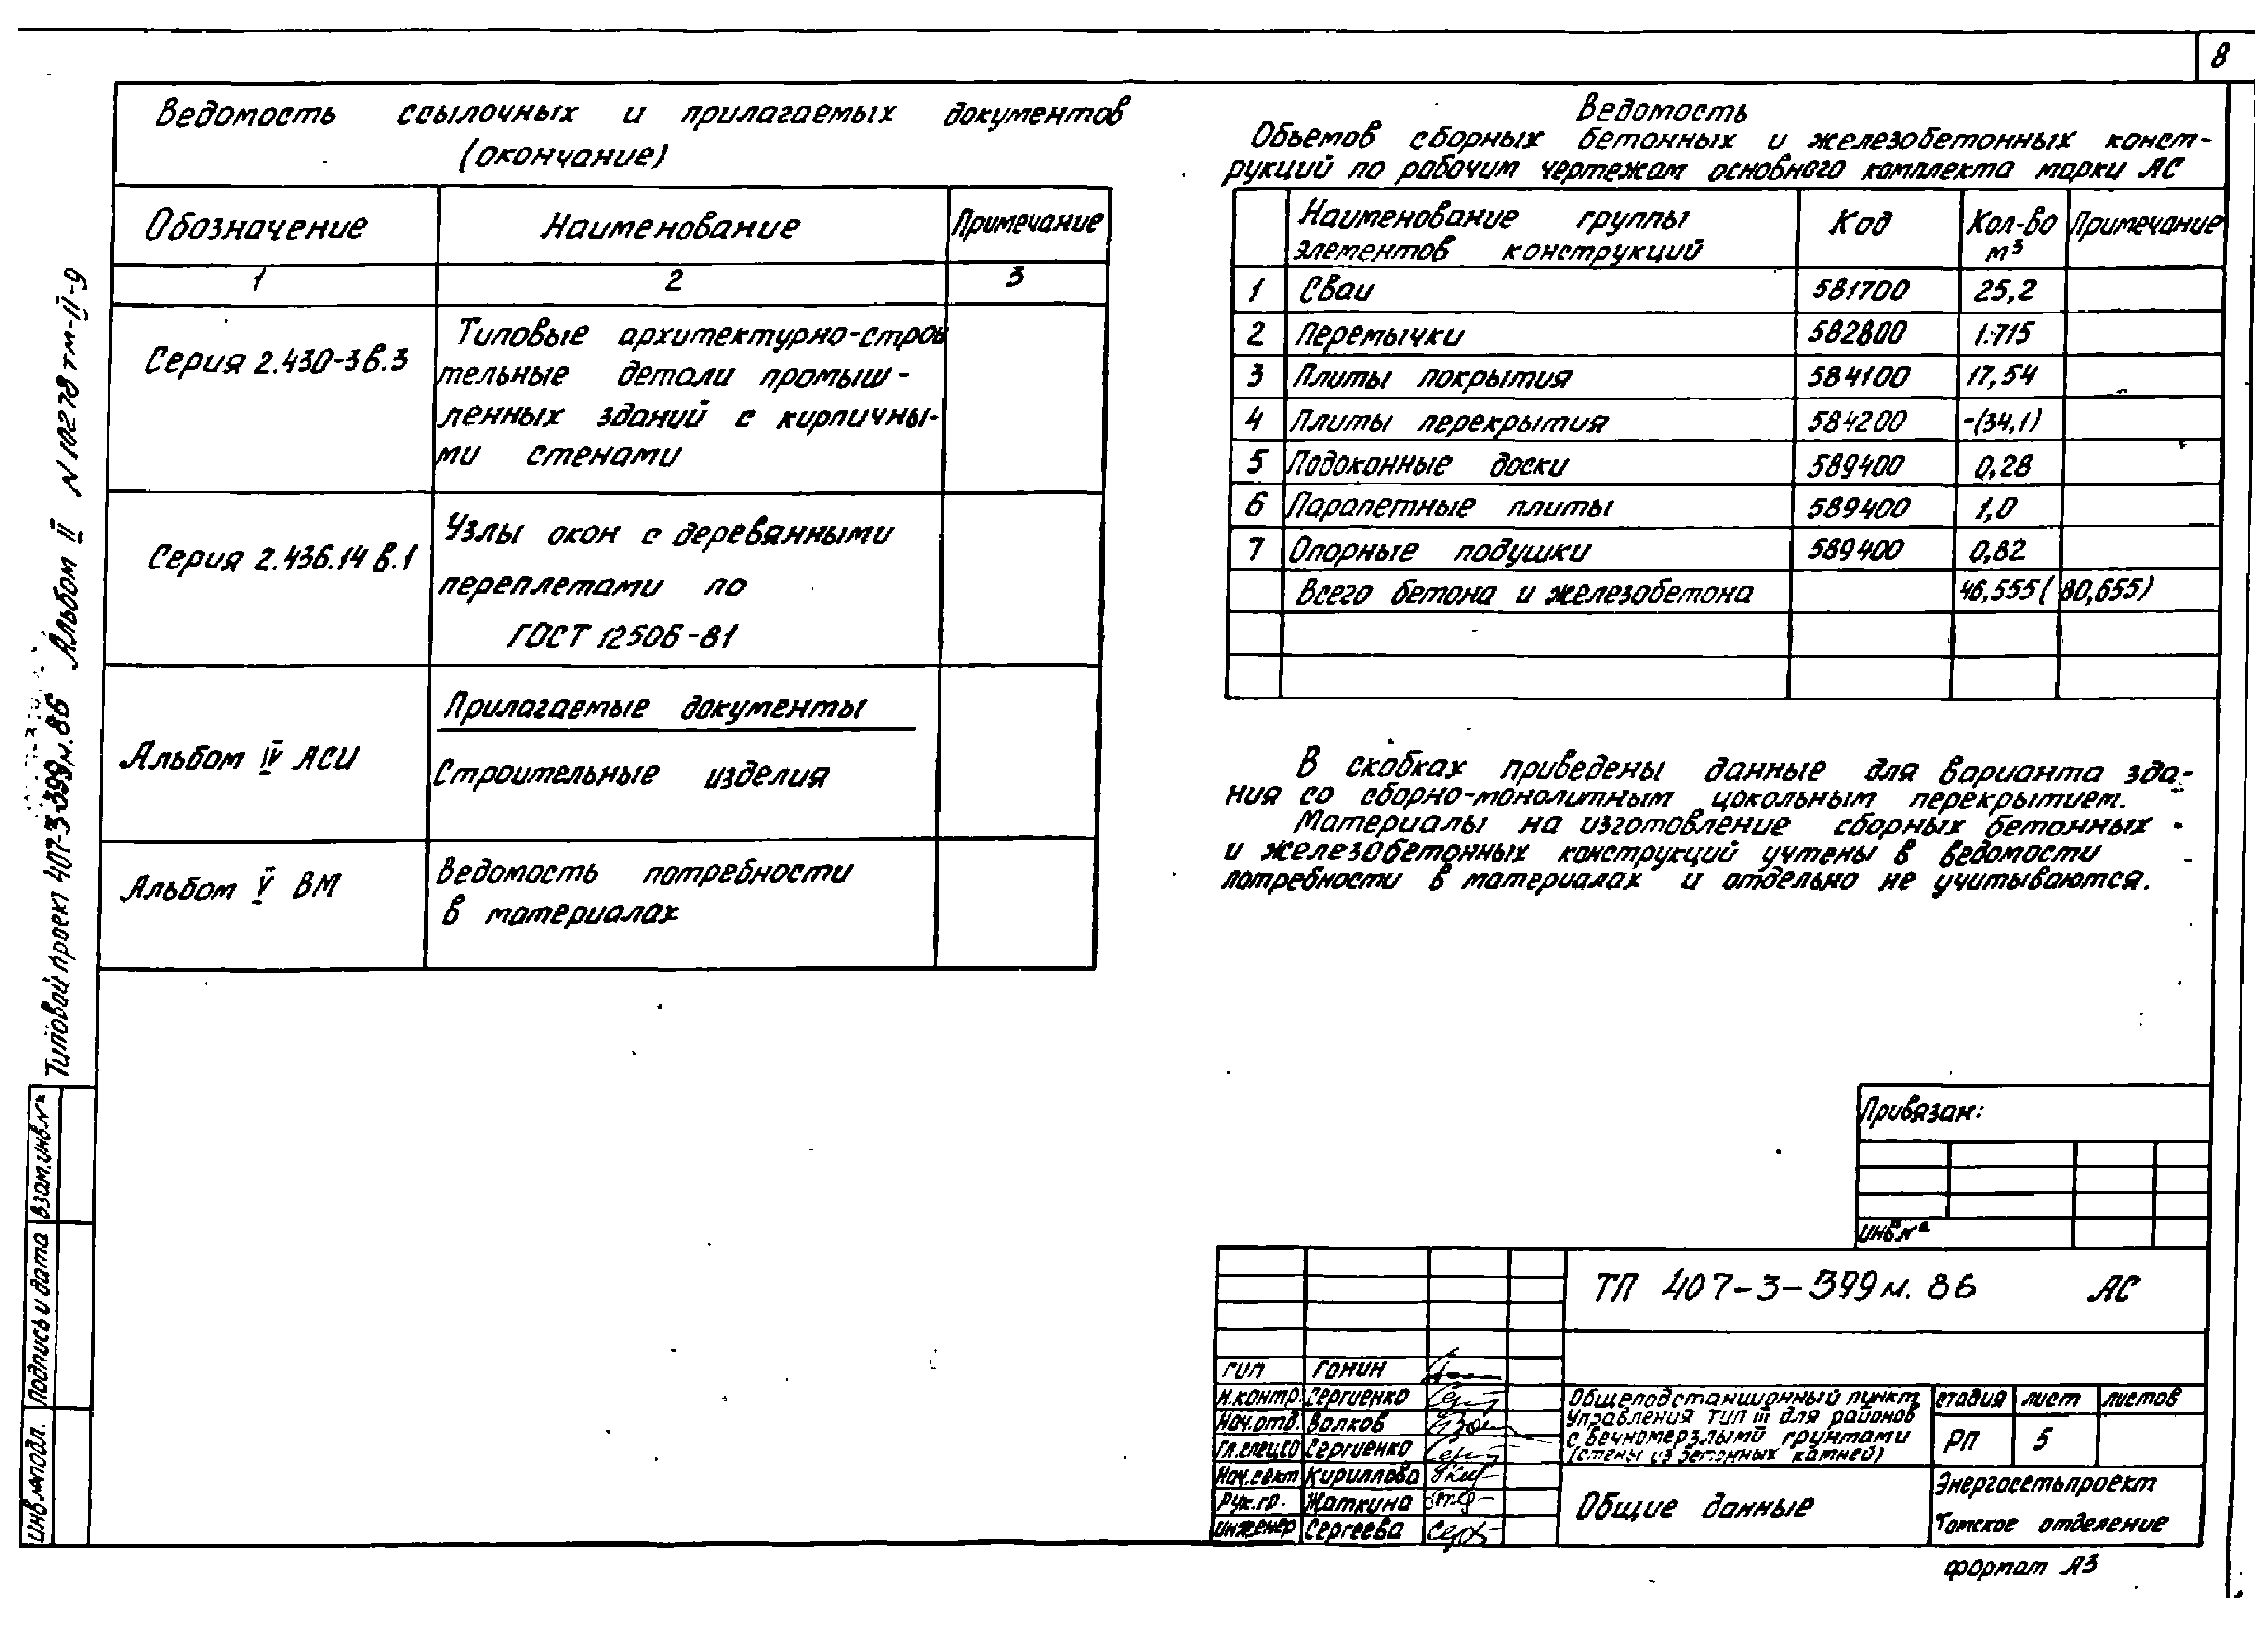 8
Ведомость ссылочных и прилагаемых документов
(окончание)
Обозначение Наименование Примечание
1 2 3
Серия 2.430-3в.3 Типовые архитектурно-строи
тельные детали промыш-
ленных зданий с кирпичны-
ми стенами
Серия 2.436.14 в.1 Узлы окон с деревянными
переплетами по
ГОСТ 12506-81
Прилагаемые документы
Альбом IV АСИ Строительные изделия
Альбом V ВМ Ведомость потребности
в материалах
Ведомость
Объемов сборных бетонных и железобетонных конст-
рукций по рабочим чертежам основного комплекта марки АС
Наименование группы Код Кол-во Примечание
элементов конструкций м³
1 Сваи 581700 25,2
2 Перемычки 582800 1.715
3 Плиты покрытия 584100 17,54
4 Плиты перекрытия 584200 -(34,1)
5 Подоконные доски 589400 0,28
6 Парапетные плиты 589400 1,0
7 Опорные подушки 589400 0,82
Всего бетона и железобетона 46,555(80,655)
В скобках приведены данные для варианта зда-
ния со сборно-монолитным цокольным перекрытием.
Материалы на изготовление сборных бетонных
и железобетонных конструкций учтены в ведомости
потребности в материалах и отдельно не учитываются.
Типовой проект 407-3-399м.86 Альбом II N 10278тм-II-9
Взам.инв.№
Подпись и дата
Инв.№подл.
Привязан:
Инв.№
ТП 407-3-399м.86 АС
ГИП Гонин
Н.контр. Сергиенко
Нач.отд. Волков
Гл.спец.СО Сергиенко
Нач.сект Кириллова
Рук.гр. Жаткина
Инженер Сергеева
Общеподстанционный пункт
управления тип III для районов
с вечномерзлыми грунтами
(стены из бетонных камней)
стадия лист листов
РП 5
Общие данные
Энергосетьпроект
Томское отделение
формат А3